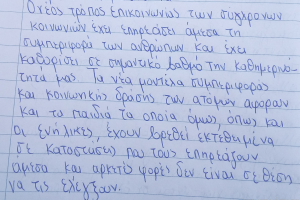 Ο νέος τρόπος επικοινωνίας των σύγχρονων
κοινωνιών έχει επηρεάσει άμεσα τη
συμπεριφορά των ανθρώπων και έχει
καθορίσει σε σημαντικό βαθμό την καθημερινό-
τητά μας. Τα νέα μοντέλα συμπεριφοράς
και κοινωνικής δράσης των ατόμων αφορούν
και τα παιδιά τα οποία όμως, όπως και
οι ενήλικες, έχουν βρεθεί εκτεθειμένα
σε καταστάσεις που τους επηρεάζουν
άμεσα και αρκετές φορές δεν είναι σε θέση
να τις ελέγξουν.